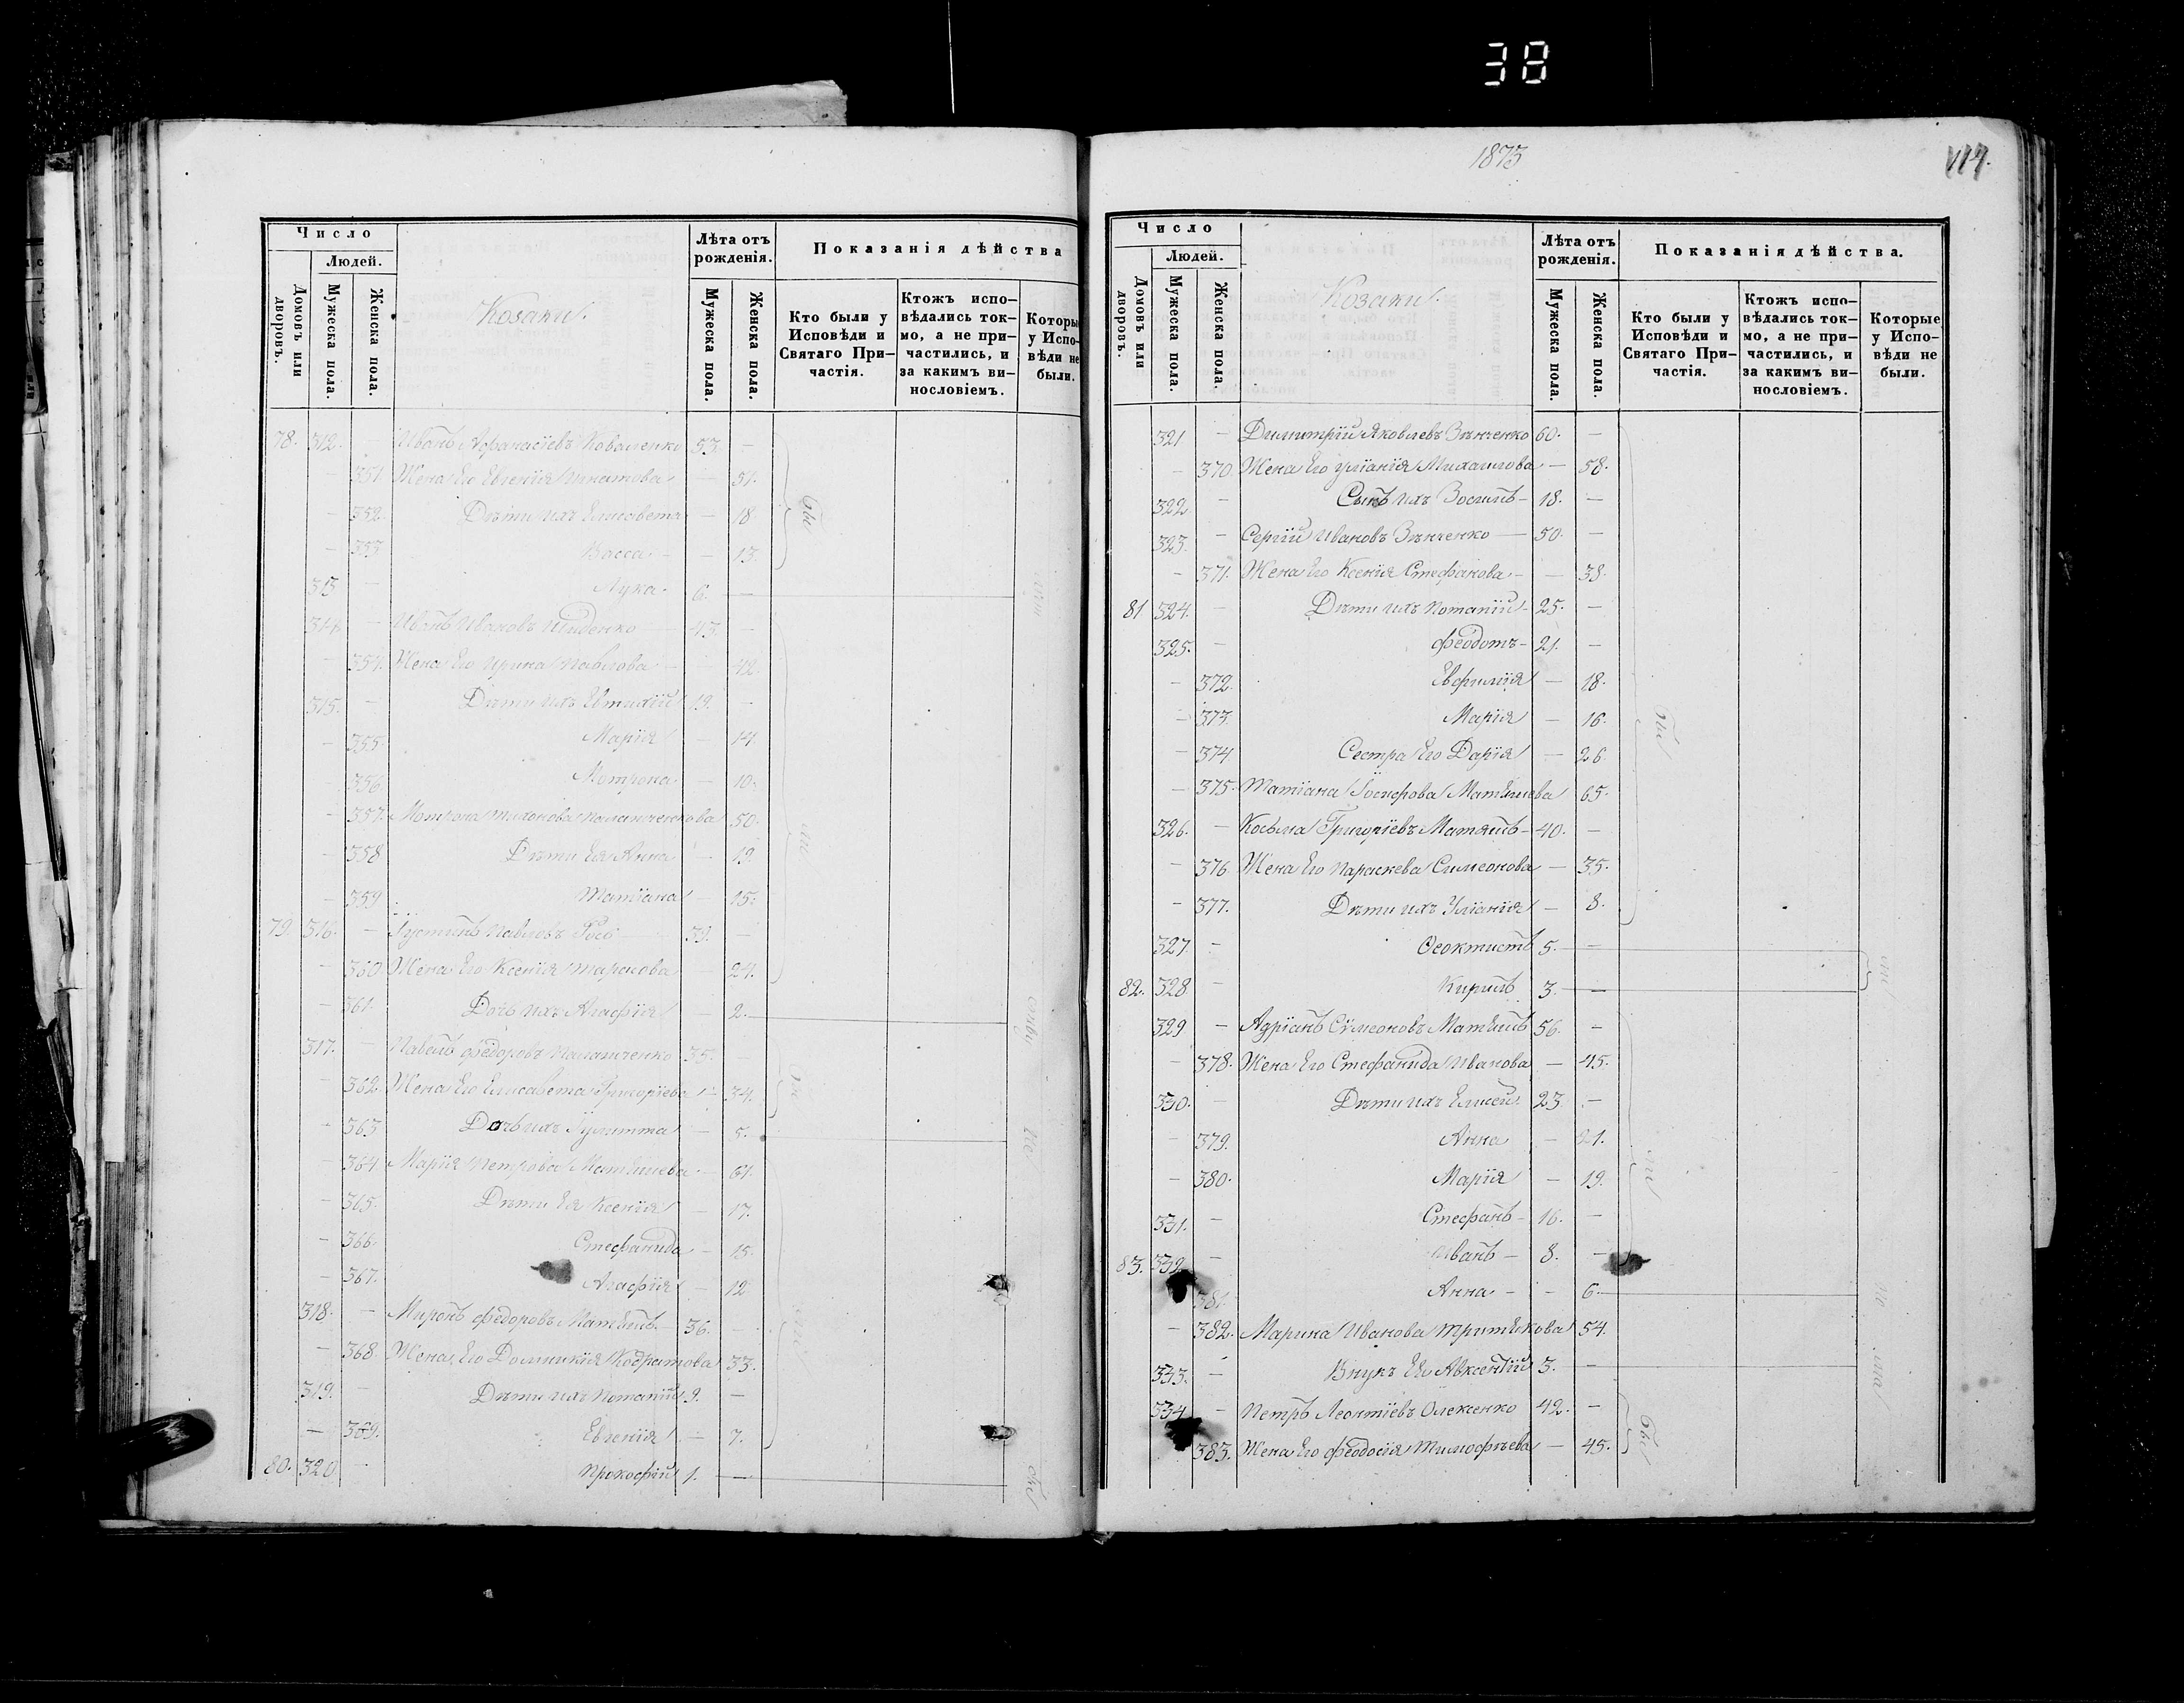 38
Число
Людей.
Домовъ или дворовъ.
Мужеска пола.
Женска пола.
Козаки.
Лѣта отъ рожденія.
Мужеска пола.
Женска пола.
Показанія дѣйства
Кто были у Исповѣди и Святаго Причастія.
Ктожъ исповѣдались токмо, а не причастились, и за какимъ винословіемъ.
Которые у Исповѣди не были.
78. 312. – Иванъ Афанасіевъ Коваленко 53. –
– 351 Жена Его Евгенія Игнатова – 51.
– 352. Дѣти ихъ Елисавета – 18
– 353 Васса – 13.
313 – Лука 6. –
314 – Иванъ Ивановъ 43. –
– 354. Жена Его Ирина Павлова – 42.
315. – Дѣти ихъ Евтихій 19. –
– 355. Марія – 14
– 356 Мотрона – 10.
– 357. Мотрона Тихонова 50.
– 358 Дѣти Ея Анна – 19.
– 359 Татіана – 15.
79. 316. – Іустинъ Павловъ 39. –
– 360. Жена Его Ксенія Тарасова – 24.
– 361. Дочь ихъ Агафія – 2.
317. – Павелъ Федоровъ 35. –
– 362. Жена Его Елисавета Григоріева – 34.
– 363 Дочь ихъ Іулитта – 5.
– 364. Марія Петрова Матяшева – 61.
– 365. Дѣти Ея Ксенія – 17.
– 366. Стефанида – 15.
– 367. Агафія – 12
318. – Миронъ Федоровъ Матяшъ 36. –
– 368. Жена Его Домникія Кодратова 33.
319. – Дѣти ихъ Потапій 9. –
– 369. Евгенія – 7.
80. 320 – Прокофій 1. –
1873
117.
Число
Людей.
Домовъ или дворовъ.
Мужеска пола.
Женска пола.
Козаки.
Лѣта отъ рожденія.
Мужеска пола.
Женска пола.
Показанія дѣйства.
Кто были у Исповѣди и Святаго Причастія.
Ктожъ исповѣдались токмо, а не причастились, и за какимъ винословіемъ.
Которые у Исповѣди не были.
321 – Димитрій Яковлевъ Зѣнченко 60. –
– 370. Жена Его Уліанія Михаилова – 58.
322 – Сынъ ихъ Зосимъ 18. –
323. – Сергій Ивановъ Зѣнченко 50. –
– 371. Жена Его Ксенія Стефанова – 38.
81 324. – Дѣти ихъ Потапій 25. –
325. – Феодотъ 21. –
– 372. Евфимія – 18.
– 373. Марія – 16.
– 374. Сестра Его Дарія – 26.
– 375. Татіана Іосифова Матяшева 65.
326. – Косьма Григоріевъ Матяшъ 40. –
– 376. Жена Его Параскева Симеонова – 35.
– 377. Дѣти ихъ Уліанія – 8.
327. – Ѳеоктистъ 5. –
82. 328. – Кирилъ 3. –
329 – Адріанъ Сѵмеоновъ Матяшъ 56. –
– 378. Жена Его Стефанида Иванова – 45.
330. – Дѣти ихъ Елисей 23. –
– 379. Анна – 21.
– 380. Марія – 19.
331. – Стефанъ 16. –
83. 332 – Иванъ 8. –
381. Анна – 6.
– 382. Марина Иванова 54.
333. – Внукъ Её Авксентій 3. –
334 – Петръ Леонтіевъ Олексенко 42. –
383. Жена Его Феодосія Тимофѣева – 45.